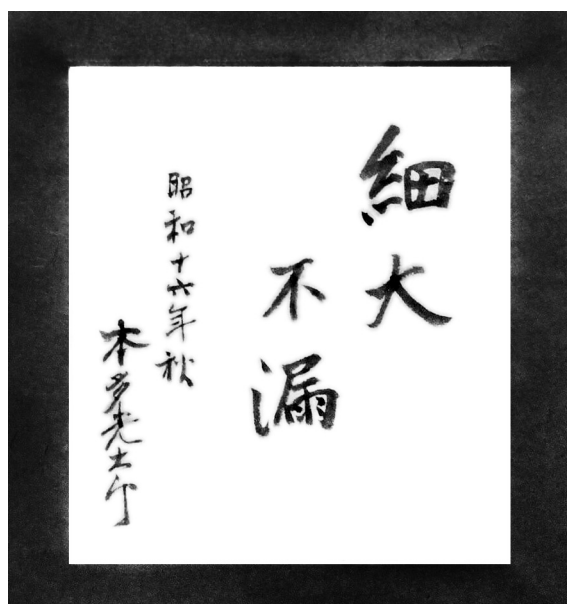 細大
不漏
昭和十六年秋
本多光太郎